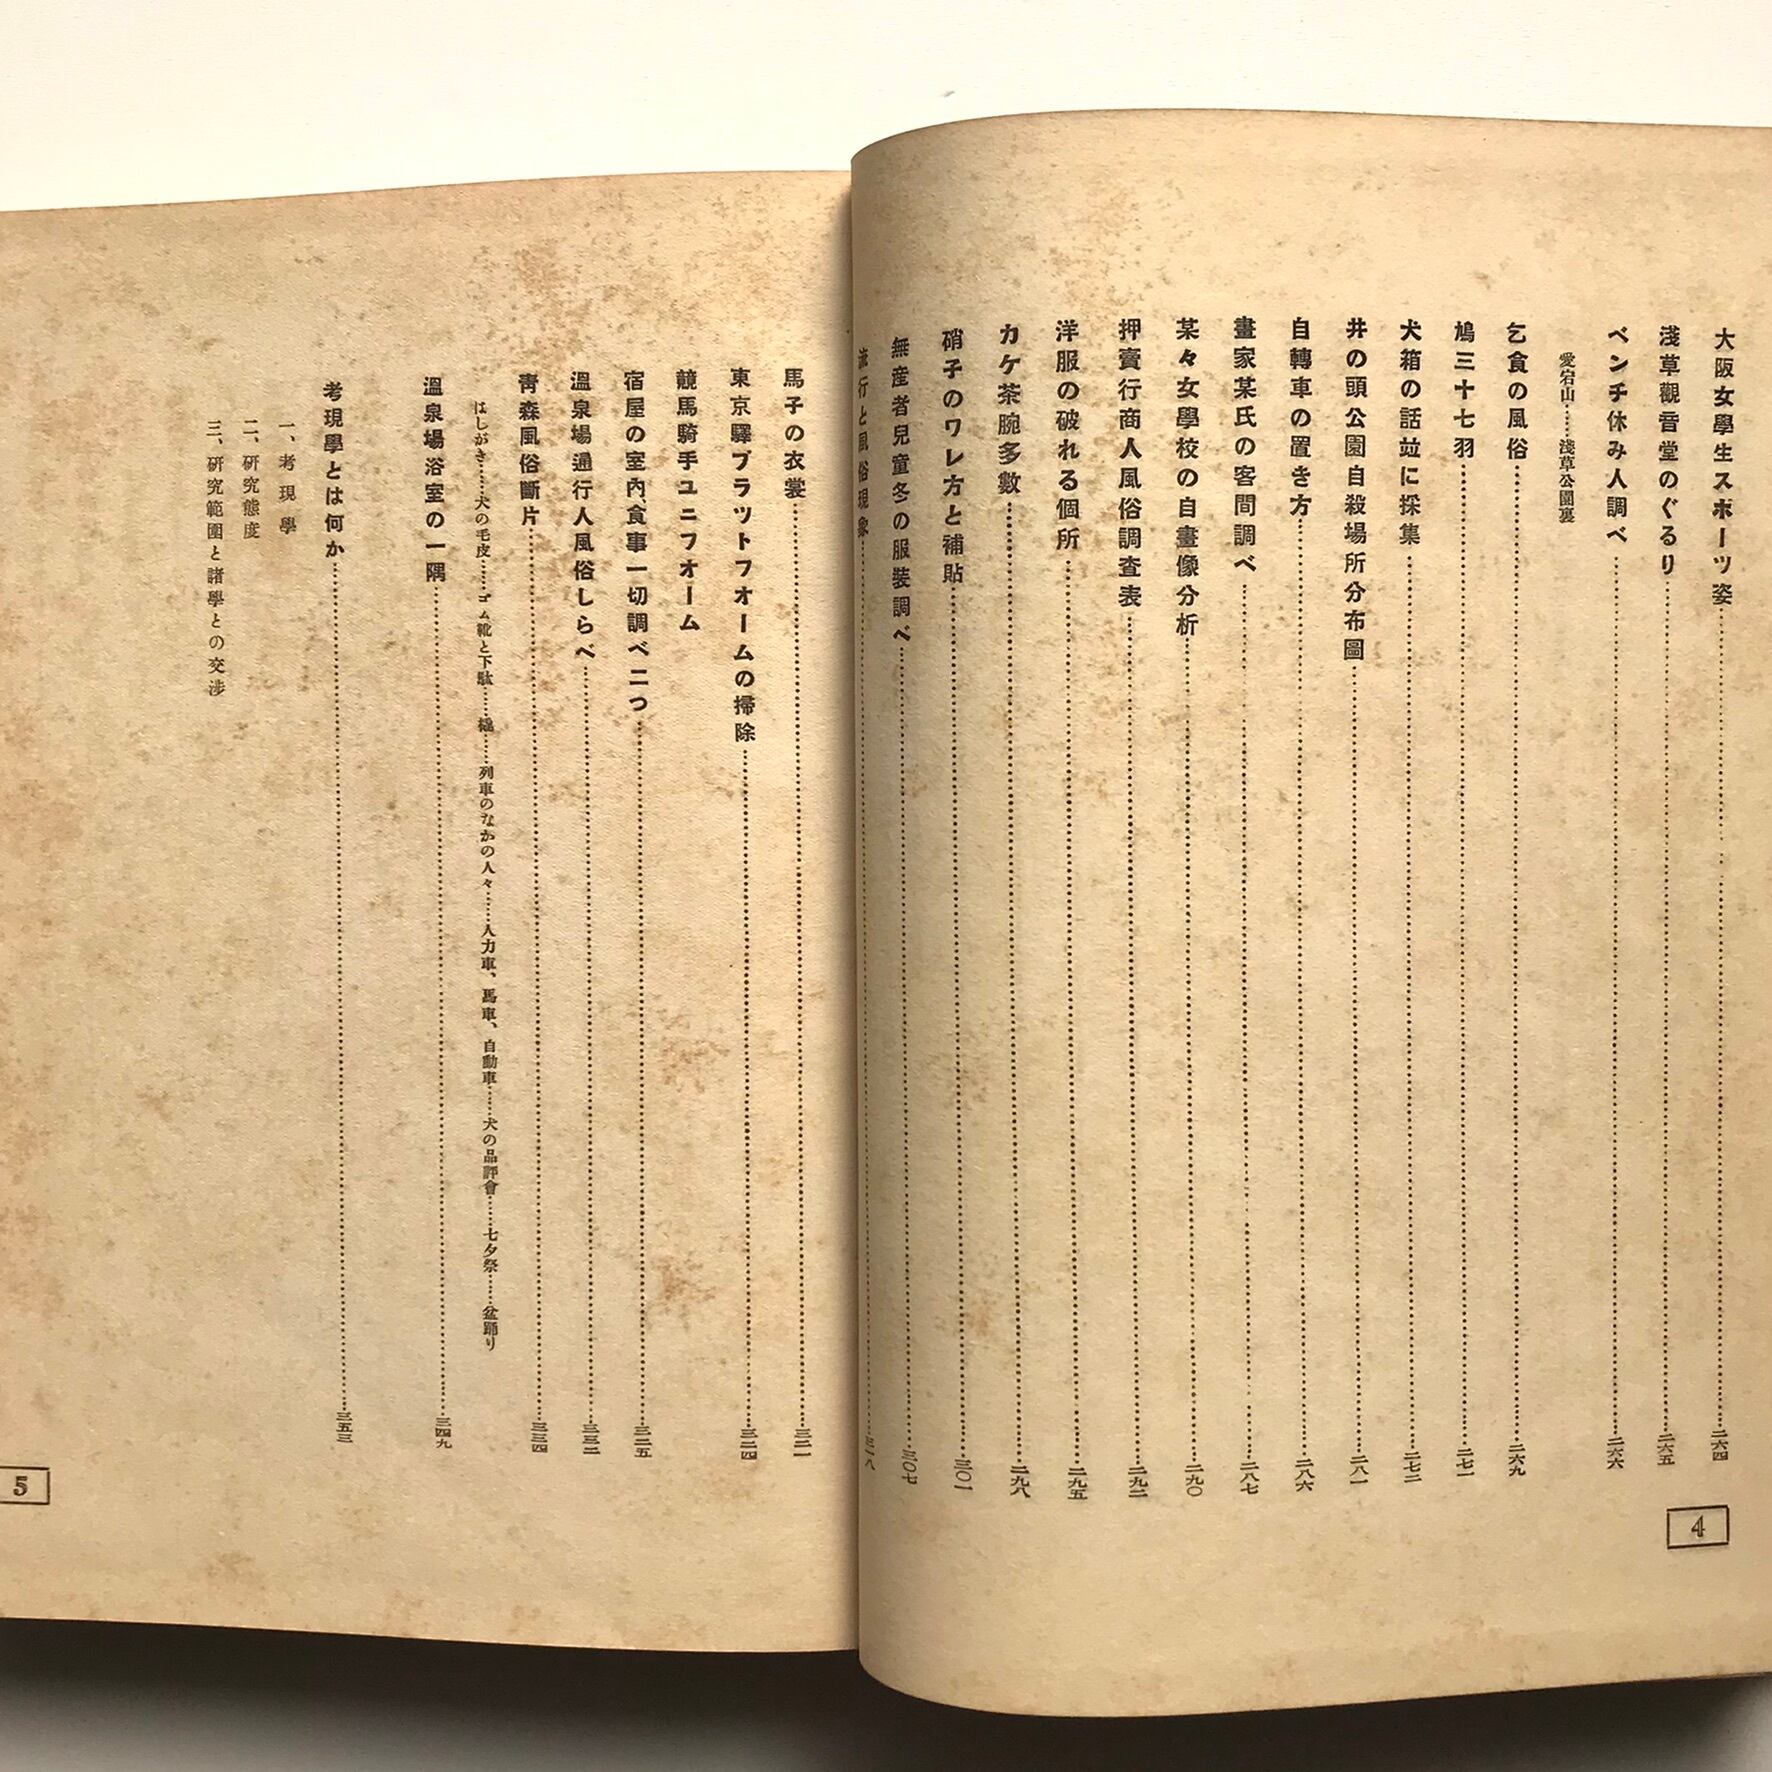 大阪女學生スポーツ姿……二六四
淺草觀音堂のぐるり……二六五
ベンチ休み人調べ……二六六
愛宕山……淺草公園裏
乞食の風俗……二六九
鳩三十七羽……二七一
犬箱の話竝に採集……二七二
井の頭公園自殺場所分布圖……二八一
自轉車の置き方……二八六
畫家某氏の客間調べ……二八七
某々女學校の自畫像分析……二九〇
押賣行商人風俗調査表……二九二
洋服の破れる個所……二九五
カケ茶腕多數……二九八
硝子のワレ方と補貼……三〇一
無産者兒童冬の服裝調べ……三〇七
流行と風俗現象……三一八
4
馬子の衣裳……三二一
東京驛プラツトフオームの掃除……三二四
競馬騎手ユニフオーム
宿屋の室内、食事一切調べ二つ……三二五
溫泉場通行人風俗しらべ……三三二
靑森風俗斷片……三三四
はしがき……犬の毛皮……ゴム靴と下駄……橇……列車のなかの人々……人力車、馬車、自動車……犬の品評會……七夕祭……盆踊り
溫泉場浴室の一隅……三四九
考現學とは何か……三五三
一、考現學
二、研究態度
三、研究範圍と諸學との交渉
5